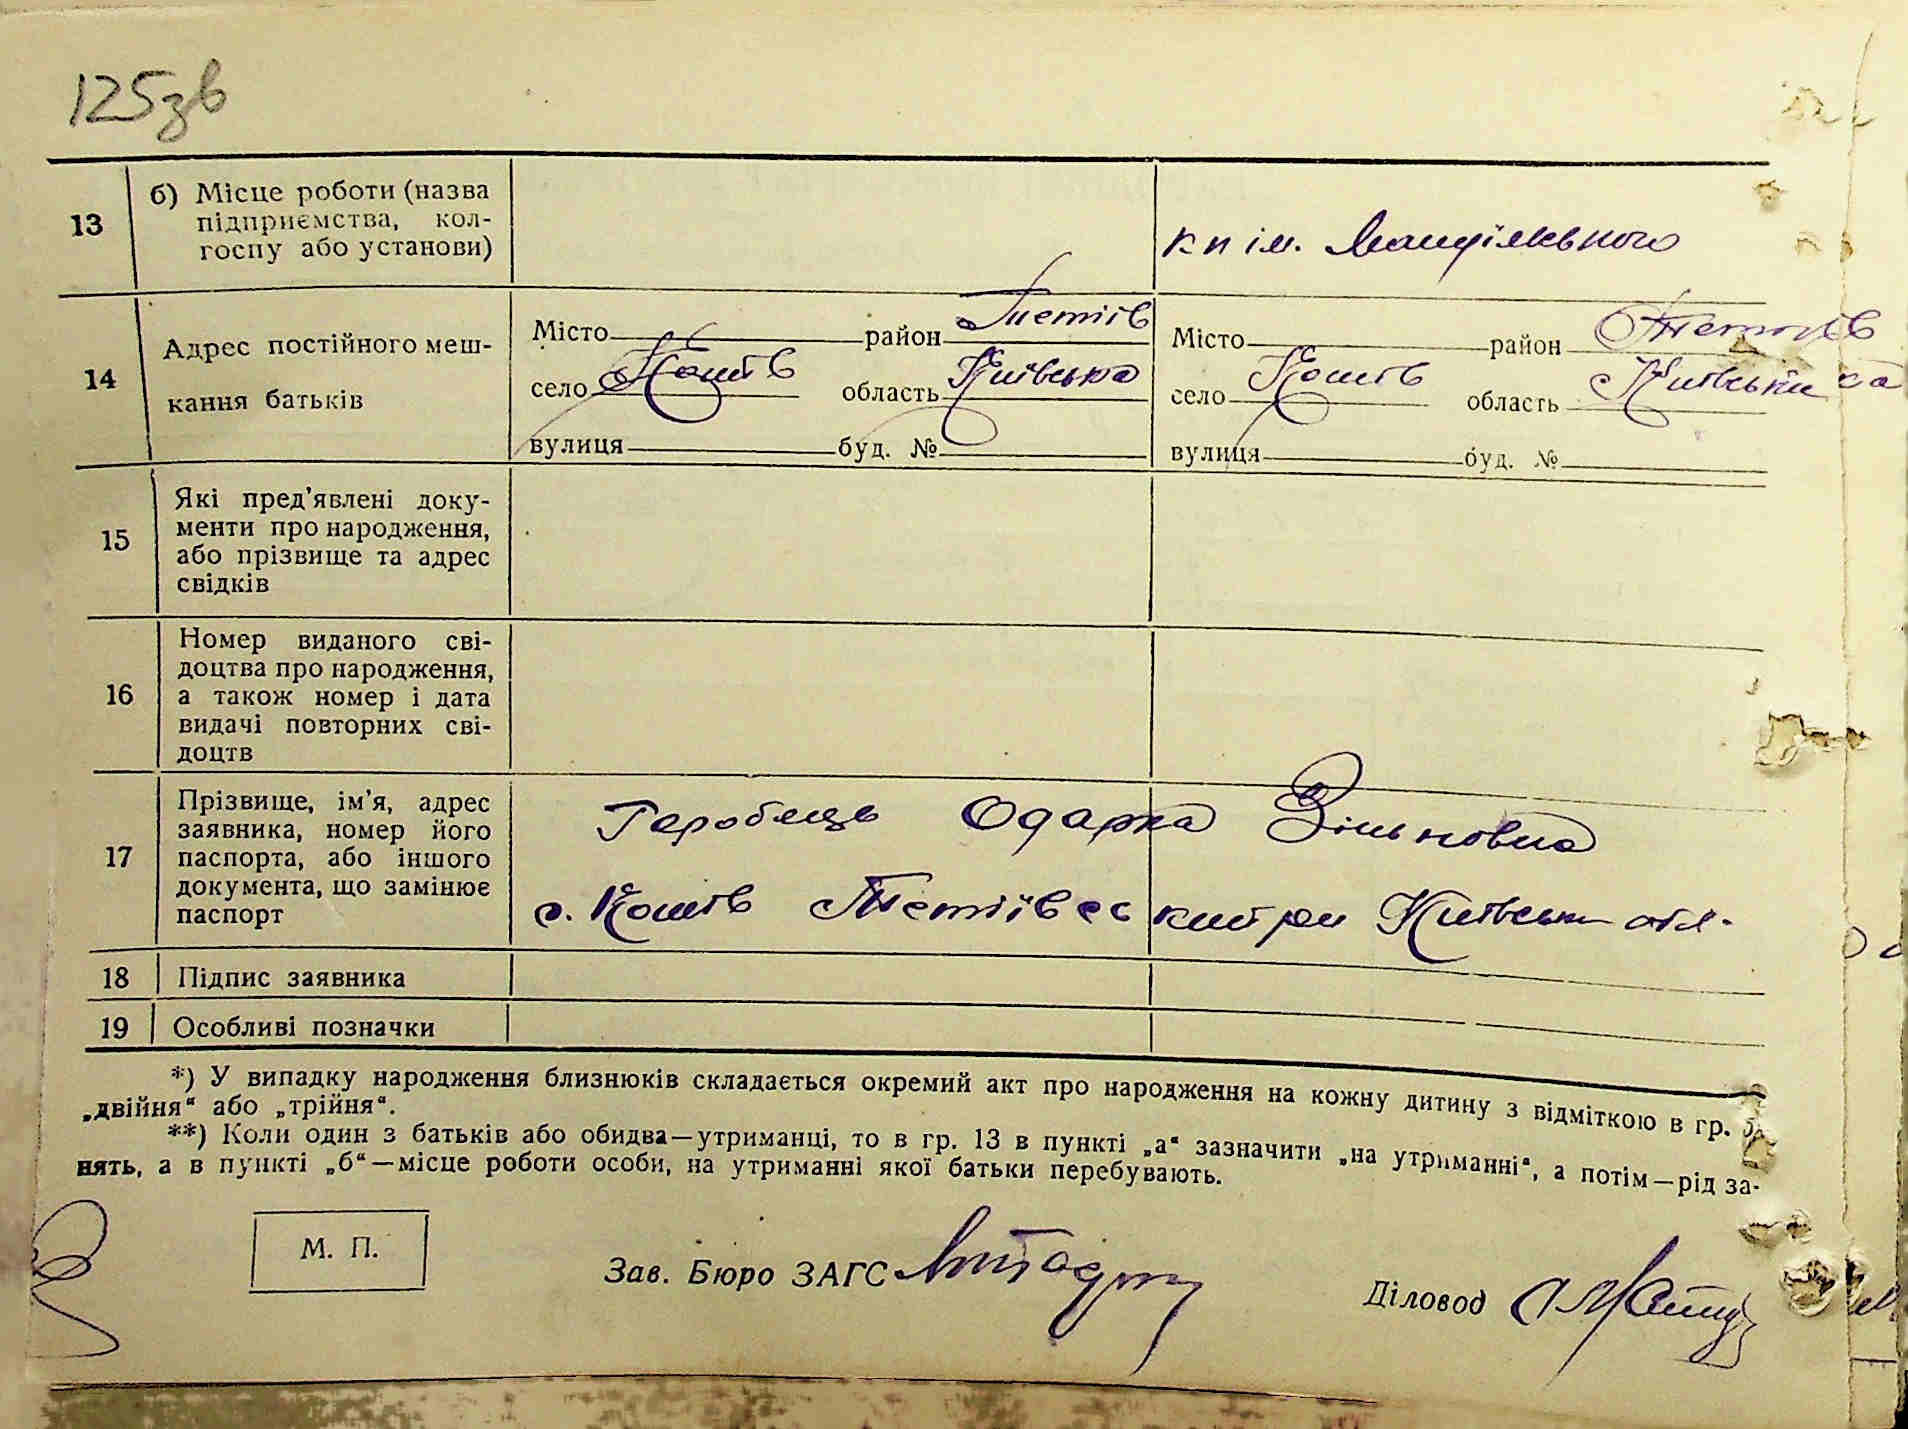 125зв
13
б) Місце роботи (назва
підприємства, кол-
госпу або установи)
кп ім.
14
Адрес постійного меш-
кання батьків
Місто район Тетіїв
село Кошів область Київська
вулиця буд. №
Місто район Тетіїв
село Кошів область Київська
вулиця буд. №
15
Які пред'явлені доку-
менти про народження,
або прізвище та адрес
свідків
16
Номер виданого сві-
доцтва про народження,
а також номер і дата
видачі повторних сві-
доцтв
17
Прізвище, ім'я, адрес
заявника, номер його
паспорта, або іншого
документа, що замінює
паспорт
Одарка Зіньковна
с. Кошів
18 Підпис заявника
19 Особливі позначки
*) У випадку народження близнюків складається окремий акт про народження на кожну дитину з відміткою в гр. 5
„двійня“ або „трійня“.
**) Коли один з батьків або обидва—утриманці, то в гр. 13 в пункті „а“ зазначити „на утриманні“, а потім—рід за-
нять, а в пункті „б“—місце роботи особи, на утриманні якої батьки перебувають.
М. П.
Зав. Бюро ЗАГС
Діловод